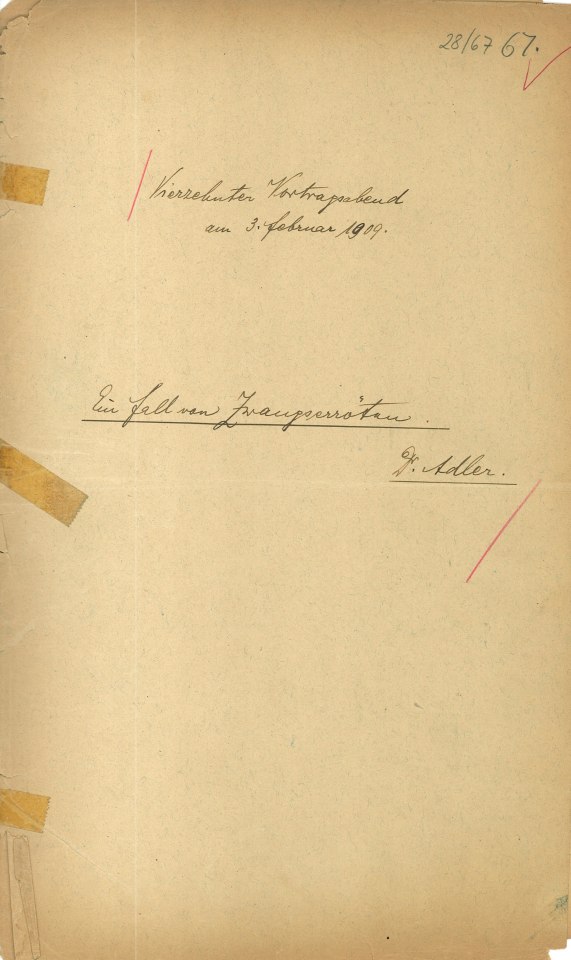 28/67 67.
Vierzehnter Vortragsabend
am 3. Februar 1909.
Ein Fall von Zwangserröten.
Dr. Adler.